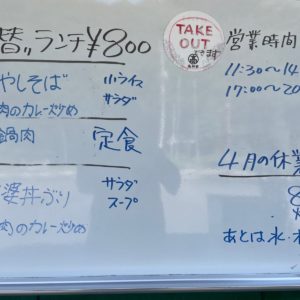 替〃ランチ¥800
やしそば 小ライス
サラダ
肉のカレー炒め
鍋肉 定食
婆丼ぶり サラダ
スープ
肉のカレー炒め
TAKE
OUT
できます
営業時間
11:30~14
17:00~20
4月の休業
8
あとは水・木